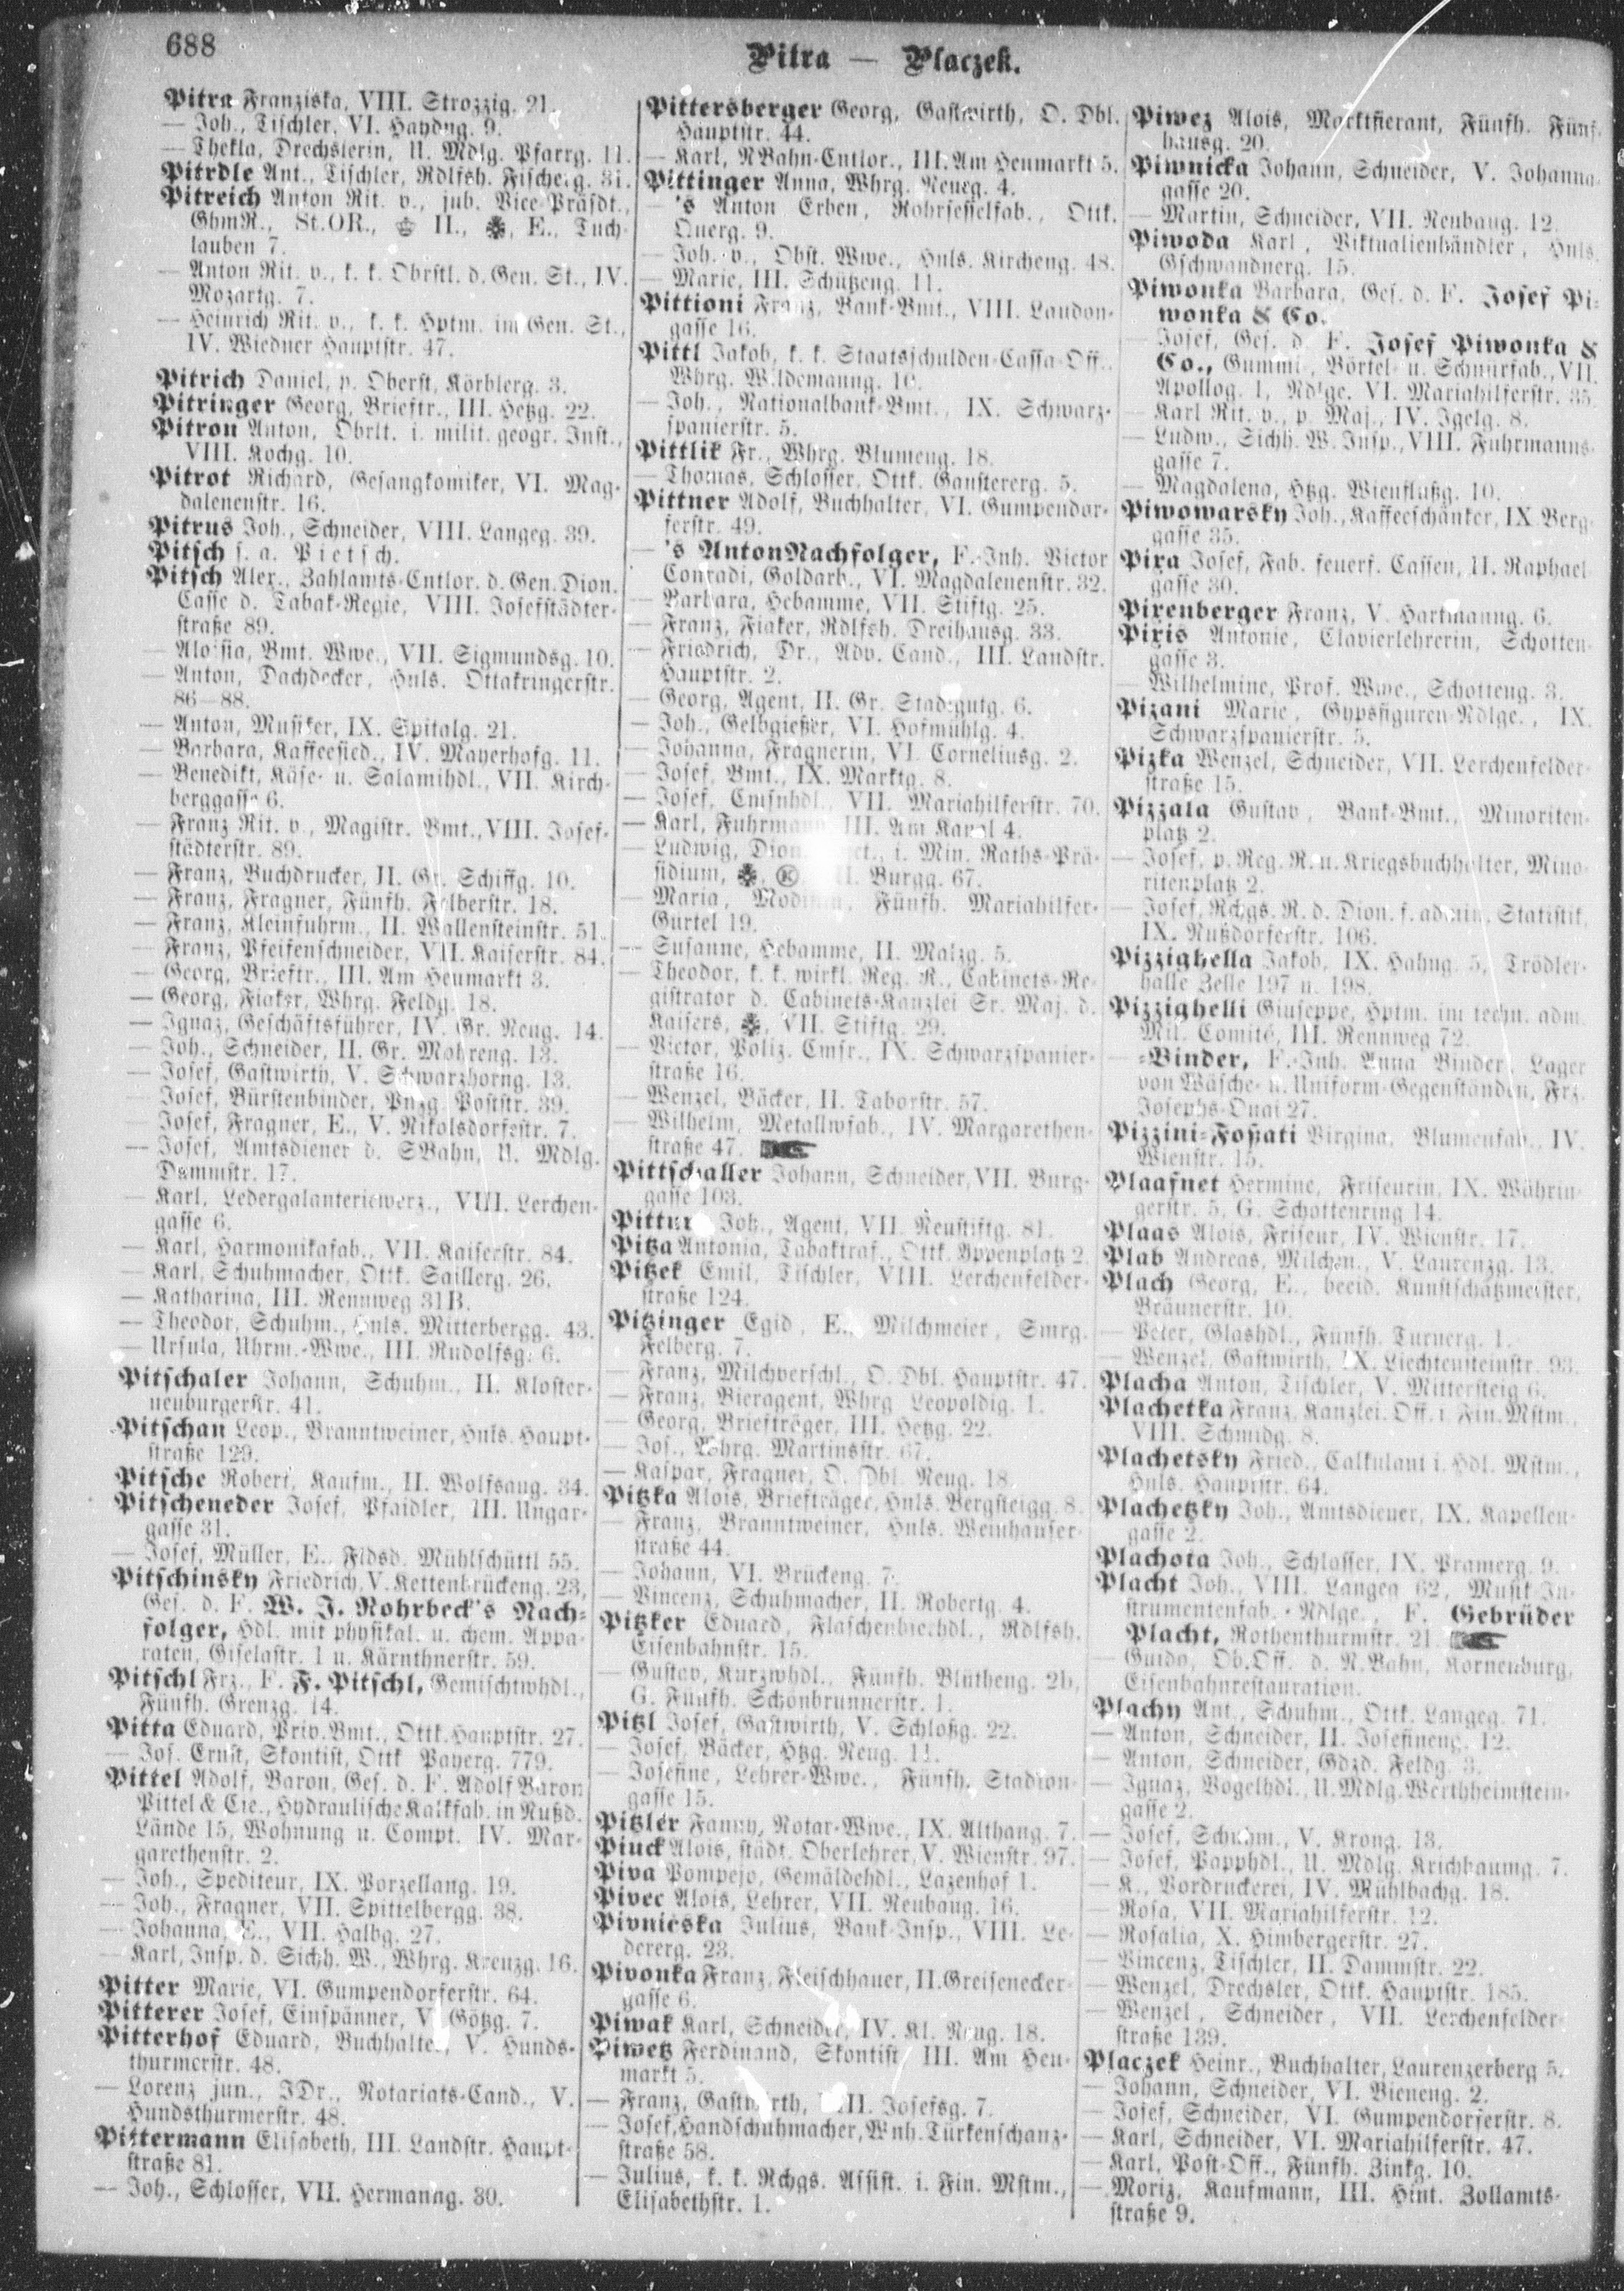 688
Pitra — Placzek.
Pitra Franziska, VIII. Strozzig. 21.
— Joh., Tischler, VI. Haydng. 9.
— Thekla, Drechslerin, U. Mdlg. Pfarrg. 11.
Pitrdle Ant., Tischler, Rdlfsh. Fischerg. 31.
Pitreich Anton Rit. v., jub. Vice-Präsdt.,
GhmR., St.OR., II., E., Tuch-
lauben 7.
— Anton Rit. v., k. k. Obrstl. d. Gen. St., IV.
Mozartg. 7.
— Heinrich Rit. v., k. k. Hptm. im Gen. St.,
IV. Wiedner Hauptstr. 47.
Pitrich Daniel, p. Oberst, Körblerg. 3.
Pitringer Georg, Brieftr., III. Hetzg. 22.
Pitron Anton, Obrlt. i. milit. geogr. Inst.,
VIII. Kochg. 10.
Pitrot Richard, Gesangkomiker, VI. Mag-
dalenenstr. 16.
Pitrus Joh., Schneider, VIII. Langeg. 39.
Pitsch s. a. Pietsch.
Pitsch Alex., Zahlamts-Cntlor. d. Gen. Dion.
Casse d. Tabak-Regie, VIII. Josefstädter-
straße 89.
— Aloisia, Bmt. Wwe., VII. Sigmundsg. 10.
— Anton, Dachdecker, Hnls. Ottakringerstr.
86—88.
— Anton, Musiker, IX. Spitalg. 21.
— Barbara, Kaffeesied., IV. Mayerhofg. 11.
— Benedikt, Käse- u. Salamihdl., VII. Kirch-
berggasse 6.
— Franz Rit. v., Magistr. Bmt., VIII. Josef-
städterstr. 89.
— Franz, Buchdrucker, II. Gr. Schiffg. 10.
— Franz, Fragner, Fünfh. Felberstr. 18.
— Franz, Kleinfuhrm., II. Wallensteinstr. 51.
— Franz, Pfeifenschneider, VII. Kaiserstr. 84.
— Georg, Brieftr., III. Am Heumarkt 3.
— Georg, Fiaker, Whrg. Feldg. 18.
— Ignaz, Geschäftsführer, IV. Gr. Neug. 14.
— Joh., Schneider, II. Gr. Mohreng. 13.
— Josef, Gastwirth, V. Schwarzhorng. 13.
— Josef, Bürstenbinder, Pnzg. Poststr. 39.
— Josef, Fragner, E., V. Nikolsdorferstr. 7.
— Josef, Amtsdiener d. SBahn, U. Mdlg.
Dammstr. 17.
— Karl, Ledergalanteriewerz., VIII. Lerchen-
gasse 6.
— Karl, Harmonikafab., VII. Kaiserstr. 84.
— Karl, Schuhmacher, Ottk. Saillerg. 26.
— Katharina, III. Rennweg 31B.
— Theodor, Schuhm., Hnls. Mitterbergg. 43.
— Ursula, Uhrm.-Wwe., III. Rudolfsg. 6.
Pitschaler Johann, Schuhm., II. Kloster-
neuburgerstr. 41.
Pitschan Leop., Branntweiner, Hnls. Haupt-
straße 129.
Pitsche Robert, Kaufm., II. Wolfsaug. 34.
Pitscheneder Josef, Pfaidler, III. Ungar-
gasse 31.
— Josef, Müller, E., Fldsd. Mühlschüttl 55.
Pitschinsky Friedrich, V. Kettenbrückeng. 23,
Ges. d. F. W. J. Rohrbeck's Nach-
folger, Hdl. mit physikal. u. chem. Appa-
raten, Giselastr. 1 u. Kärnthnerstr. 59.
Pitschl Frz., F. F. Pitschl, Gemischtwhdl.,
Fünfh. Grenzg. 14.
Pitta Eduard, Priv. Bmt., Ottk. Hauptstr. 27.
— Jos. Ernst, Skontist, Ottk Payerg. 779.
Pittel Adolf, Baron, Ges. d. F. Adolf Baron
Pittel & Cie., Hydraulische Kalkfab. in Nußd.
Lände 15, Wohnung u. Compt. IV. Mar-
garethenstr. 2.
— Joh., Spediteur, IX. Porzellang. 19.
— Joh., Fragner, VII. Spittelbergg. 38.
— Johanna, E., VII. Halbg. 27.
— Karl, Insp. d. Sichh. W., Whrg. Kreuzg. 16.
Pitter Marie, VI. Gumpendorferstr. 64.
Pitterer Josef, Einspänner, V. Götzg. 7.
Pitterhof Eduard, Buchhalter, V. Hunds-
thurmerstr. 48.
— Lorenz jun., JDr., Notariats-Cand., V.
Hundsthurmerstr. 48.
Pittermann Elisabeth, III. Landstr. Haupt-
straße 81.
— Joh., Schlosser, VII. Hermanng. 30.
Pittersberger Georg, Gastwirth, O. Dbl.
Hauptstr. 44.
— Karl, NBahn-Cntlor., III. Am Heumarkt 5.
Pittinger Anna, Whrg. Neueg. 4.
— 's Anton Erben, Rohrsesselfab., Ottk.
Querg. 9.
— Joh. v., Obst. Wwe., Hnls. Kircheng. 48.
— Marie, III. Schützeng. 11.
Pittioni Franz, Bank-Bmt., VIII. Laudon-
gasse 16.
Pittl Jakob, k. k. Staatsschulden-Cassa-Off.,
Whrg. Wildemanng. 10.
— Joh., Nationalbank-Bmt., IX. Schwarz-
spanierstr. 5.
Pittlik Fr., Whrg. Blumeng. 18.
— Thomas, Schlosser, Ottk. Ganstererg. 5.
Pittner Adolf, Buchhalter, VI. Gumpendor-
ferstr. 49.
— 's Anton Nachfolger, F.-Inh. Victor
Conradi, Goldarb., VI. Magdalenenstr. 32.
— Barbara, Hebamme, VII. Stiftg. 25.
— Franz, Fiaker, Rdlfsh. Dreihausg. 33.
— Friedrich, Dr., Adv. Cand., III. Landstr.
Hauptstr. 2.
— Georg, Agent, II. Gr. Stadtgutg. 6.
— Joh., Gelbgießer, VI. Hofmühlg. 4.
— Johanna, Fragnerin, VI. Corneliusg. 2.
— Josef, Bmt., IX. Marktg. 8.
— Josef, Cmsnhdl., VII. Mariahilferstr. 70.
— Karl, Fuhrmann, III. Am Kanal 4.
— Ludwig, Dion. i. Min. Raths-Prä-
sidium, Burgg. 67.
— Maria, Fünfh. Mariahilfer-
Gürtel 19.
— Susanne, Hebamme, II. Malzg. 5.
— Theodor, k. k. wirkl. Reg. R., Cabinets-Re-
gistrator d. Cabinets-Kanzlei Sr. Maj. d.
Kaisers, VII. Stiftg. 29.
— Victor, Poliz. Cmsr., IX. Schwarzspanier-
straße 16.
— Wenzel, Bäcker, II. Taborstr. 57.
— Wilhelm, Metallwfab., IV. Margarethen-
straße 47.
Pittschaller Johann, Schneider, VII. Burg-
gasse 103.
Joh., Agent, VII. Neustiftg. 81.
Pitza Antonia, Tabaktraf., Ottk. Appenplatz 2.
Pitzek Emil, Tischler, VIII. Lerchenfelder-
straße 124.
Pitzinger Egid, E., Milchmeier, Smrg.
Felberg. 7.
— Franz, Milchverschl., O. Dbl. Hauptstr. 47.
— Franz, Bieragent, Whrg Leopoldig. 1.
— Georg, Briefträger, III. Hetzg. 22.
— Jos., Whrg. Martinsstr. 67.
— Kaspar, Fragner, O. Dbl. Neug. 18.
Pitzka Alois, Briefträger, Hnls. Bergsteigg. 8.
— Franz, Branntweiner, Hnls. Weinhauser-
straße 44.
— Johann, VI. Brückeng. 7.
— Vincenz, Schuhmacher, II. Robertg. 4.
Pitzker Eduard, Flaschenbierhdl., Rdlfsh.
Eisenbahnstr. 15.
— Gustav, Kurzwhdl., Fünfh. Blütheng. 2b,
G. Fünfh. Schönbrunnerstr. 1.
Pitzl Josef, Gastwirth, V. Schloßg. 22.
— Josef, Bäcker, Htzg. Neug. 11.
— Josefine, Lehrer-Wwe., Fünfh. Stadion-
gasse 15.
Pitzler Fanny, Notar-Wwe., IX. Althang. 7.
Piuck Alois, städt. Oberlehrer, V. Wienstr. 97.
Piva Pompejo, Gemäldehdl., Lazenhof 1.
Pivec Alois, Lehrer, VII. Neubaug. 16.
Pivnicska Julius, Bank-Insp., VIII. Le-
dererg. 23.
Pivonka Franz, Fleischhauer, II. Greisenecker-
gasse 6.
Piwak Karl, Schneider, IV. Kl. Neug. 18.
Piwetz Ferdinand, Skontist III. Am Heu-
markt 5.
— Franz, Gastwirth, VIII. Josefsg. 7.
— Josef, Handschuhmacher, Wnh. Türkenschanz-
straße 58.
— Julius, k. k. Rchgs. Assist. i. Fin. Mstm.,
Elisabethstr. 1.
Piwez Alois, Marktfierant, Fünfh. Fünf-
hausg. 20.
Piwnicka Johann, Schneider, V. Johanna-
gasse 20.
— Martin, Schneider, VII. Neubaug. 12.
Piwoda Karl, Viktualienhändler, Hnls.
Gschwandnerg. 15.
Piwonka Barbara, Ges. d. F. Josef Pi-
wonka & Co.
— Josef, Ges. d. F. Josef Piwonka &
Co., Gummi-, Börtel- u. Schnürfab., VII.
Apollog. 1, Ndlge. VI. Mariahilferstr. 35.
— Karl Rit. v., p. Maj., IV. Igelg. 8.
— Ludw., Sichh. W. Insp., VIII. Fuhrmanns-
gasse 7.
— Magdalena, Htzg. Wienflußg. 10.
Piwowarsky Joh., Kaffeeschänker, IX Berg-
gasse 35.
Pixa Josef, Fab. feuerf. Cassen, II. Raphael-
gasse 30.
Pixenberger Franz, V. Hartmanng. 6.
Pixis Antonie, Clavierlehrerin, Schotten-
gasse 3.
— Wilhelmine, Prof. Wwe., Schotteng. 3.
Pizani Marie, Gypsfiguren-Ndlge., IX.
Schwarzspanierstr. 5.
Pizka Wenzel, Schneider, VII. Lerchenfelder-
straße 15.
Pizzala Gustav, Bank-Bmt., Minoriten-
platz 2.
— Josef, p. Reg. R. u. Kriegsbuchhalter, Mino-
ritenplatz 2.
— Josef, Rchgs. R. d. Dion. f. admin. Statistik,
IX. Nußdorferstr. 106.
Pizzighella Jakob, IX. Hahng. 5, Trödler-
halle Zelle 197 u. 198.
Pizzighelli Giuseppe, Hptm. im techn. adm.
Mil. Comité, III. Rennweg 72.
— =Binder, F.-Inh. Anna Binder, Lager
von Wäsche- u. Uniform-Gegenständen, Frz.
Josephs-Quai 27.
Pizzini=Foßati Virgina, Blumenfab., IV.
Wienstr. 15.
Plaafnet Hermine, Friseurin, IX. Währin-
gerstr. 5, G. Schottenring 14.
Plaas Alois, Friseur, IV. Wienstr. 17.
Plab Andreas, Milchm., V. Laurenzg. 13.
Plach Georg, E., beeid. Kunstschätzmeister,
Bräunerstr. 10.
— Peter, Glashdl., Fünfh. Turnerg. 1.
— Wenzel, Gastwirth, IX. Liechtensteinstr. 93.
Placha Anton, Tischler, V. Mittersteig 6.
Plachetka Franz, Kanzlei-Off. i. Fin. Mstm.,
VIII. Schmidg. 8.
Plachetsky Fried., Calkulant i. Hdl. Mstm.,
Hnls. Hauptstr. 64.
Plachetzky Joh., Amtsdiener, IX. Kapellen-
gasse 2.
Plachota Joh., Schlosser, IX. Pramerg. 9.
Placht Joh., VIII. Langeg 62, Musik-In-
strumentenfab.-Ndlge., F. Gebrüder
Placht, Rothenthurmstr. 21
— Guido, Ob. Off. d. N. Bahn, Korneuburg,
Eisenbahnrestauration.
Plachy Ant., Schuhm., Ottk. Langeg. 71.
— Anton, Schneider, II. Josefineng. 12.
— Anton, Schneider, Gdzd. Feldg. 3.
— Ignaz, Vogelhdl., U. Mdlg. Werthheimstein-
gasse 2.
— Josef, Schuhm., V. Krong. 13.
— Josef, Papphdl., U. Mdlg. Krichbaumg. 7.
— K., Vordruckerei, IV. Mühlbachg. 18.
— Rosa, VII. Mariahilferstr. 12.
— Rosalia, X. Himbergerstr. 27.
— Vincenz, Tischler, II. Dammstr. 22.
— Wenzel, Drechsler, Ottk. Hauptstr. 185.
— Wenzel, Schneider, VII. Lerchenfelder-
straße 139.
Placzek Heinr., Buchhalter, Laurenzerberg 5.
— Johann, Schneider, VI. Bieneng. 2.
— Josef, Schneider, VI. Gumpendorferstr. 8.
— Karl, Schneider, VI. Mariahilferstr. 47.
— Karl, Post-Off., Fünfh. Zinkg. 10.
— Moriz, Kaufmann, III. Hint. Zollamts-
straße 9.